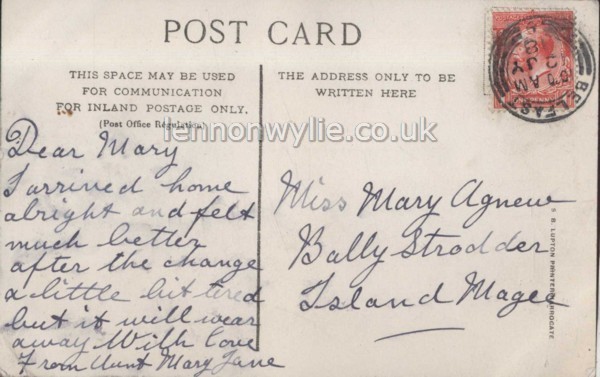 POST CARD
THIS SPACE MAY BE USED
FOR COMMUNICATION
FOR INLAND POSTAGE ONLY.
(Post Office Regulation)
THE ADDRESS ONLY TO BE
WRITTEN HERE
lennonwylie.co.uk
BELFAST
AM
JY
Dear Mary
I arrived home
alright and felt
much better
after the change
a little bit tired
but it will wear
away With love
From Aunt Mary Jane
Miss Mary Agnew
Bally Strodder
Island Magee
B. LUPTON PRINTER HARROGATE